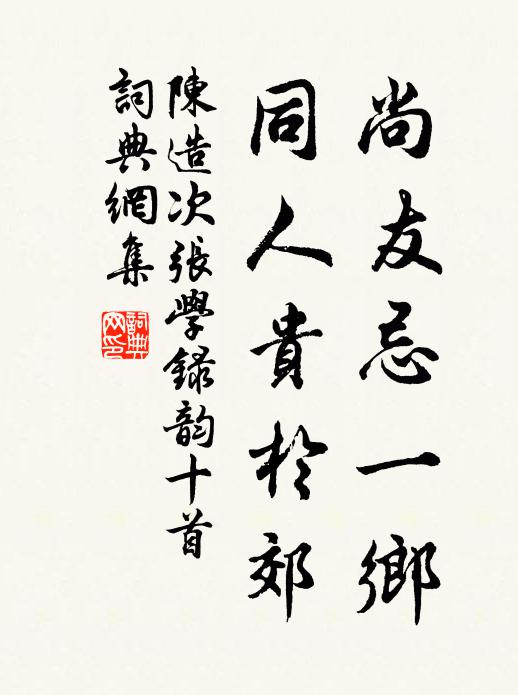 尚友忌一鄉
同人貴於郊
陳造次張學錄韵十首
詞典網集
詞典網印